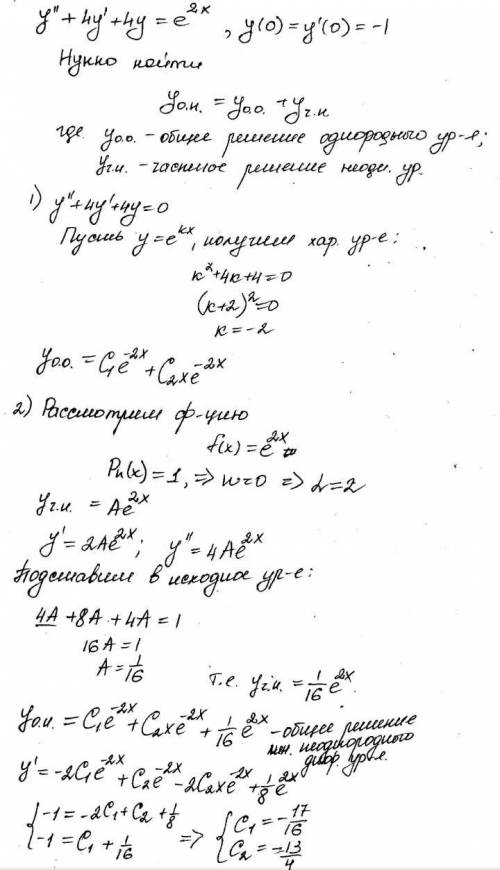 y'' + 4y' + 4y = e^{2x}, y(0) = y'(0) = -1
Нужно найти
y_{о.н.} = y_{о.о.} + y_{ч.н}
где y_{о.о.} - общее решение однородного ур-я;
y_{ч.н.} - частное решение неодн. ур.
1) y'' + 4y' + 4y = 0
Пусть y = e^{kx}, получим хар. ур-е:
k² + 4k + 4 = 0
(k+2)² = 0
k = -2
y_{о.о.} = C₁e^{-2x} + C₂xe^{-2x}
2) Рассмотрим ф-цию
f(x) = e^{2x}
Pₙ(x) = 1, ⇒ n=0 ⇒ α=2
y_{ч.н.} = Ae^{2x}
y' = 2Ae^{2x}; y'' = 4Ae^{2x}
Подставим в исходное ур-е:
4A + 8A + 4A = 1
16A = 1
A = 1/16
т.е. y_{ч.н.} = 1/16 e^{2x}.
y_{о.н.} = C₁e^{-2x} + C₂xe^{-2x} + 1/16 e^{2x} - общее решение
лин. неоднородного
диф. ур-я.
y' = -2C₁e^{-2x} + C₂e^{-2x} - 2C₂xe^{-2x} + 1/8 e^{2x}
{ -1 = -2C₁ + C₂ + 1/8
{ -1 = C₁ + 1/16
⇒ { C₁ = -17/16
{ C₂ = -13/4